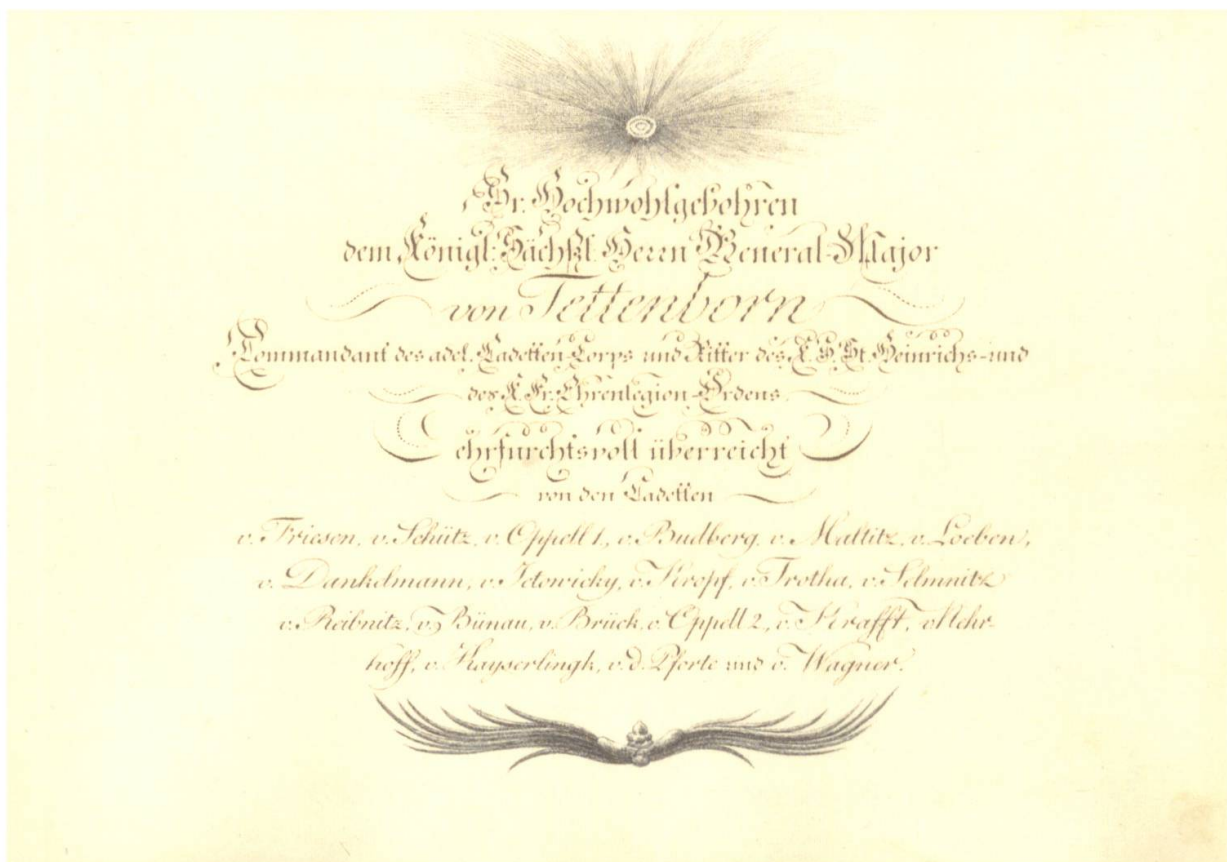 Sr. Hochwohlgebohren
dem Königl: Sächßl. Herrn General-Major
von Tettenborn
Commandant des adel. Cadetten-Corps und Ritter des K. S. St. Heinrichs- und
des K. Fr. Ehrenlegion-Ordens
ehrfurchtsvoll überreicht
von den Cadetten
v. Friesen, v. Schütz, v. Oppell 1, v. Budberg, v. Maltitz, v. Loeben,
v. Dankelmann, v. Jetowicky, v. Kropf, v. Trotha, v. Selmnitz
v. Reibnitz, v. Bünau, v. Brück, v. Oppell 2, v. Krafft, v. Mehr-
hoff, v. Kayserlingk, v. d. Pforte und v. Wagner.